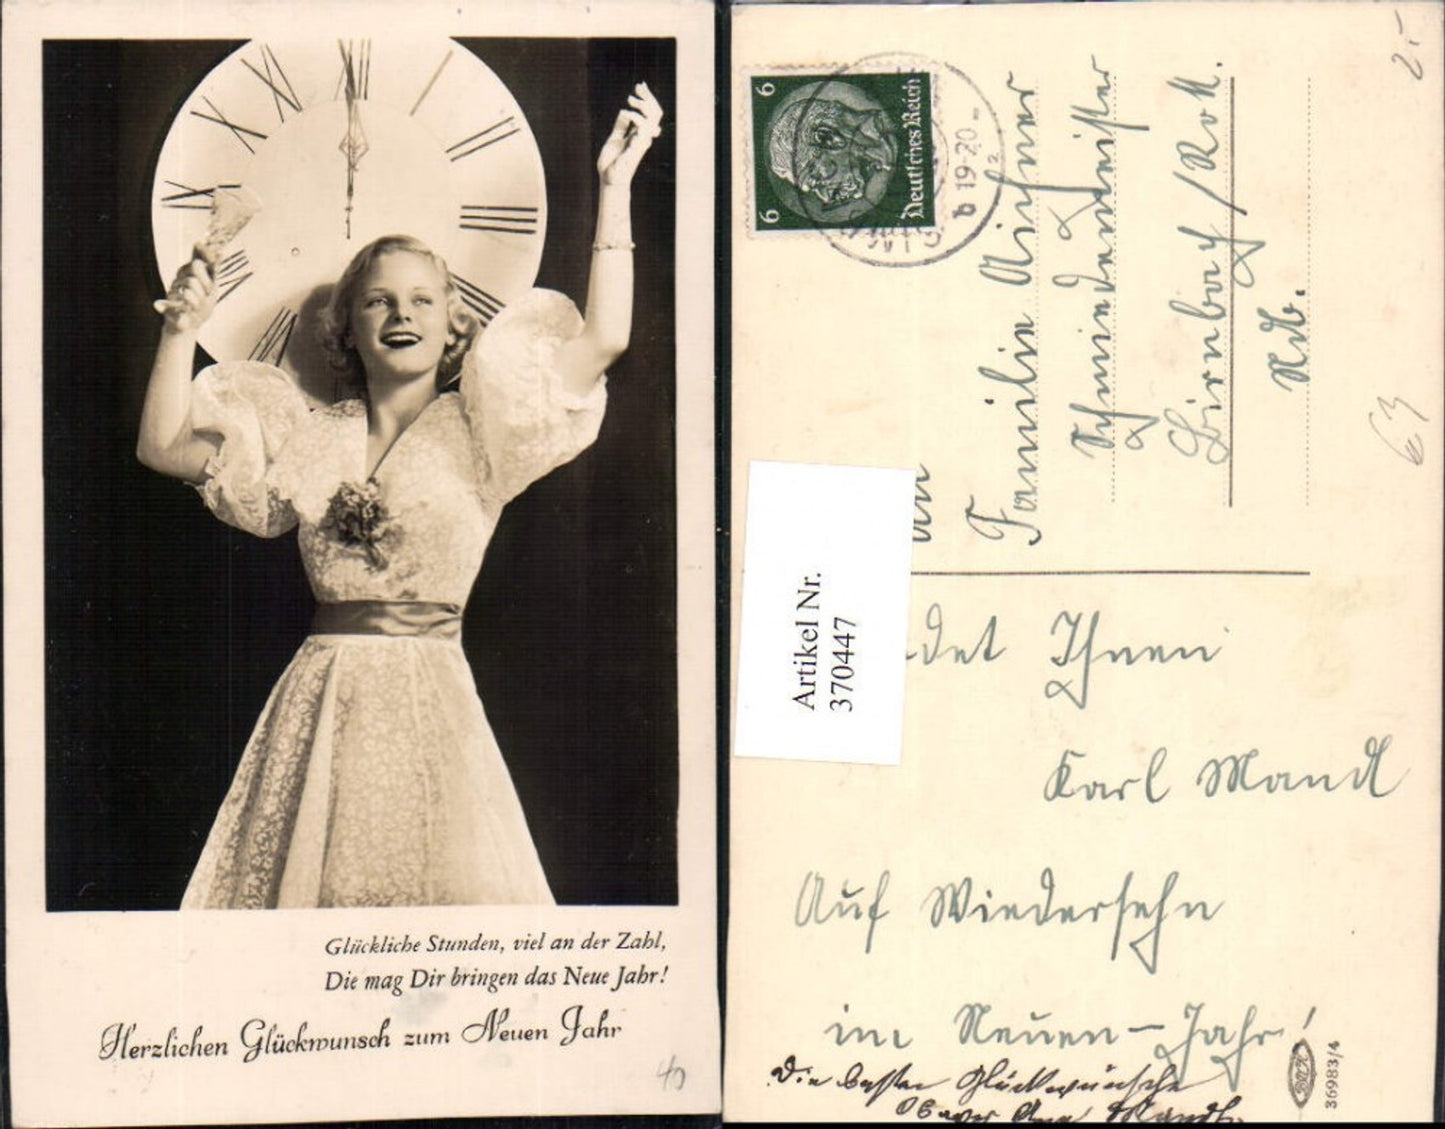 Glückliche Stunden, viel an der Zahl,
Die mag Dir bringen das Neue Jahr!
Herzlichen Glückwunsch zum Neuen Jahr
40
6
6
Deutsches Reich
19-20
Familie Aichner
Schmiedemeister
Birnbach / Rott.
Ndb.
25
63
Artikel Nr.
370447
Ihnen
Karl Mandl
Auf Wiedersehn
im Neuen-Jahr!
Die besten Glückwünsche
36983/4